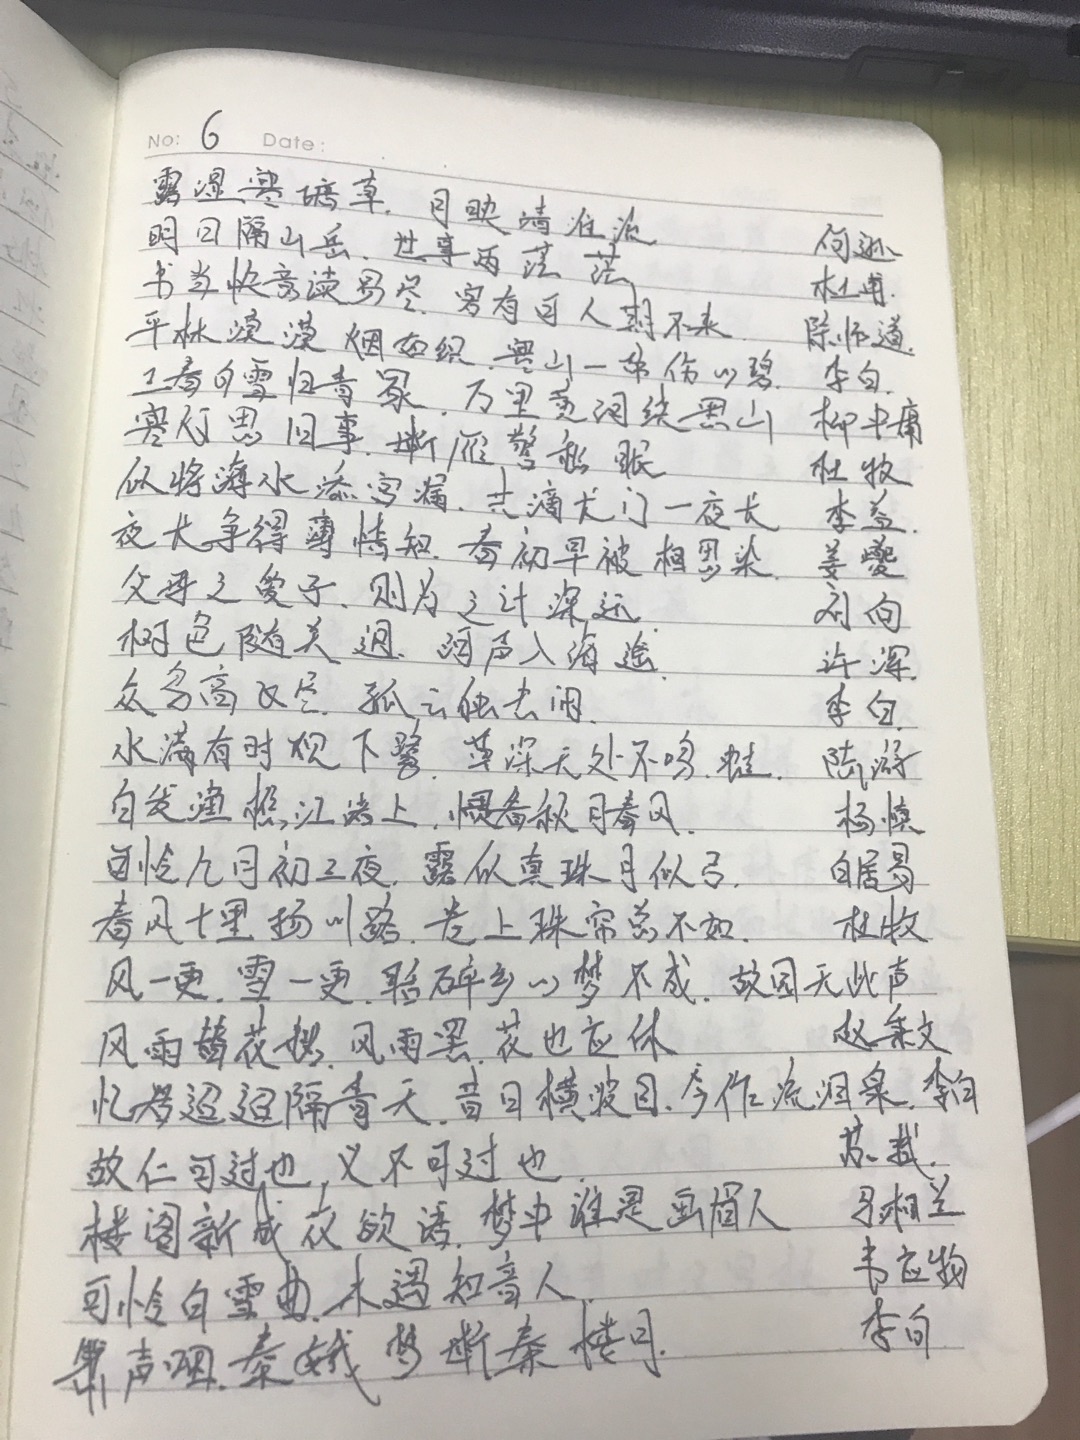 No: 6 Date:
露湿寒塘草,月映清淮流 何逊
明日隔山岳,世事两茫茫 杜甫.
书当快意读易尽,客有可人期不来 陈师道.
平林漠漠烟如织,寒山一带伤心碧. 李白.
三春白雪归青冢,万里黄河绕黑山 柳中庸
寒灯思旧事,断雁警愁眠 杜牧
似将海水添宫漏,共滴长门一夜长 李益.
夜长争得薄情知,春初早被相思染. 姜夔
父母之爱子,则为之计深远. 刘向
树色随关迥,河声入海遥. 许浑.
众鸟高飞尽,孤云独去闲. 李白.
水满有时观下鹭,草深无处不鸣蛙. 陆游
白发渔樵江渚上,惯看秋月春风. 杨慎
可怜九月初三夜,露似真珠月似弓. 白居易
春风十里扬州路,卷上珠帘总不如. 杜牧
风一更,雪一更,聒碎乡心梦不成,故园无此声
风雨替花愁,风雨罢,花也应休 赵秉文
忆君迢迢隔青天,昔日横波目,今作流泪泉. 李白
故仁可过也,义不可过也. 苏轼.
楼阁新成花欲语,梦中谁是画眉人 马相兰
可怜白雪曲,未遇知音人. 韦应物
箫声咽,秦娥梦断秦楼月. 李白